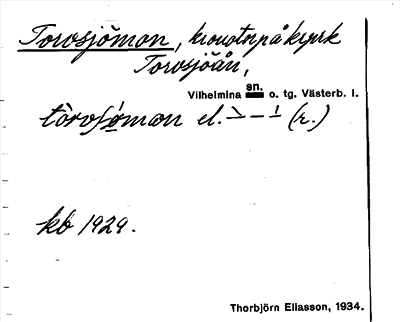 Torvsjömon, kronotorp å kyrk
Torvsjöån,
Vilhelmina sn. o. tg. Västerb. l.
el. (r.)
kb 1929.
Thorbjörn Eliasson, 1934.